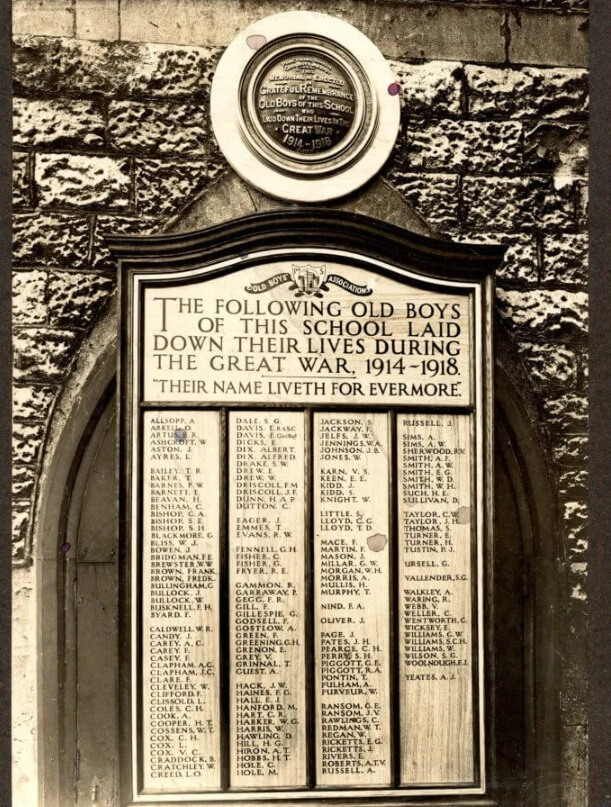 MEMORIAL IS ERECTED
GRATEFUL REMEMBRANCE
OF THE
OLD BOYS OF THIS SCHOOL
WHO
LAID DOWN THEIR LIVES IN THE
GREAT WAR
1914-1918
OLD BOYS' ASSOCIATION
THE FOLLOWING OLD BOYS
OF THIS SCHOOL LAID
DOWN THEIR LIVES DURING
THE GREAT WAR, 1914-1918.
"THEIR NAME LIVETH FOR EVERMORE."
ALLSOPP, A.
ARKELL, O.
ARTUS, E. R.
ASHCROFT, W
ASTON, J.
AYRES, L.
BAILEY, T. R
BAKER, T.
BARNES, P. W
BARNETT, E.
BEAVAN, H.
BENHAM, C.
BISHOP, G. A.
BISHOP, S. E.
BISHOP, S. H
BLACKMORE, G
BLISS, W. J.
BOWEN, J.
BRIDGMAN, F.E
BREWSTER, W.W
BROWN, FRANK.
BROWN, FREDK.
BULLINGHAM, C
BULLOCK, J.
BULLOCK, W.
BUSKNELL, F. H.
BYARD, F.
CALDWELL, W.R.
CANDY, J.
CAREY, A. C.
CAREY, F.
CASEY, F.
CLAPHAM, A.G.
CLAPHAM, J.C.
CLARE, F.
CLEVELEY, W.
CLIFFORD, F.
CLISSOLD, L.
COLES, C. H
COOK, A.
COOPER, H. T.
COSSENS, W. T.
COX, C. H.
COX, L.
COX, V. C.
CRADDOCK, B.
CRATCHLEY, W.
CREED, L.O.
DALE, S. G.
DAVIS, E. RASC
DAVIS, E.
DICKS, E.
DIX, ALBERT.
DIX, ALFRED.
DRAKE, S. W.
DREW, E.
DREW, W.
DRISCOLL, F.M
DRISCOLL, J.F.
DUNN, H. A. P
DUTTON, C.
EAGER, J.
EMMES, T.
EVANS, R. W.
FENNELL, G. H
FISHER, C.
FISHER, G.
FRYER, R. E.
GAMMON, R.
GARRAWAY, P.
GEGG, F. R.
GILL, F.
GILLESPIE, G.
GODSELL, F.
GOSTLOW, A.
GREEN, F.
GREENING, G.H
GRENON, E.
GREY, V.
GRINNAL, T.
GUEST, A.
HACK, J. W.
HAINES, F. G.
HALL, E. J.
HANFORD, M.
HART, C. R.
HARKER, W. G
HARRIS, W.
HAWLING, D.
HILL, H. G.
HIRON, A. T.
HOBBS, H. T.
HOLE, C.
HOLE, M.
JACKSON, S.
JACKWAY, F.
JELFS, J. W.
JENNINGS, W.A.
JOHNSON, J.B.
JONES, W.
KARN, V. S.
KEEN, E. E.
KIDD, J.
KIDD, S.
KNIGHT, W.
LITTLE, S.
LLOYD, C. G.
LLOYD, T. D.
MACE, F.
MARTIN, F.
MASON, J.
MILLAR, G. W.
MORGAN, W. H
MORRIS, A.
MULLIS, H.
MURPHY, T.
NIND, F. A.
OLIVER, J.
PAGE, J.
PATES, J. H.
PEARCE, C. H.
PERRY, S. H.
PIGGOTT, G. E.
PIGGOTT, R.A.
PONTIN, T.
PULHAM, A.
PURVEUR, W.
RANSOM, G.E.
RANSOM, J.V.
RAWLINGS, C.
REDMAN, W. T.
REGAN, W.
RICKETTS, E.G.
RICKETTS, J.
RIVERS, E.
ROBERTS, A.T.V.
RUSSELL, A.
RUSSELL, J.
SIMS, A.
SIMS, A. W.
SHERWOOD, R.V.
SMITH, A. F.
SMITH, A. W.
SMITH, E. G.
SMITH, W. D.
SMITH, W. H.
SUCH, H. E.
SULLIVAN, D.
TAYLOR, C. W.
TAYLOR, J. H.
THOMAS, S.
TURNER, E.
TURNER, H.
TUSTIN, P. J.
URSELL, G.
VALLENDER, S.G.
WALKLEY, A.
WARING, R.
WEBB, V.
WELLER, C.
WENTWORTH, C.
WICKSEY, E.
WILLIAMS, G. W
WILLIAMS, S.C.H.
WILLIAMS, W.
WILSON, S. G.
WOOLNOUGH, E.J.
YEATES, A. J.